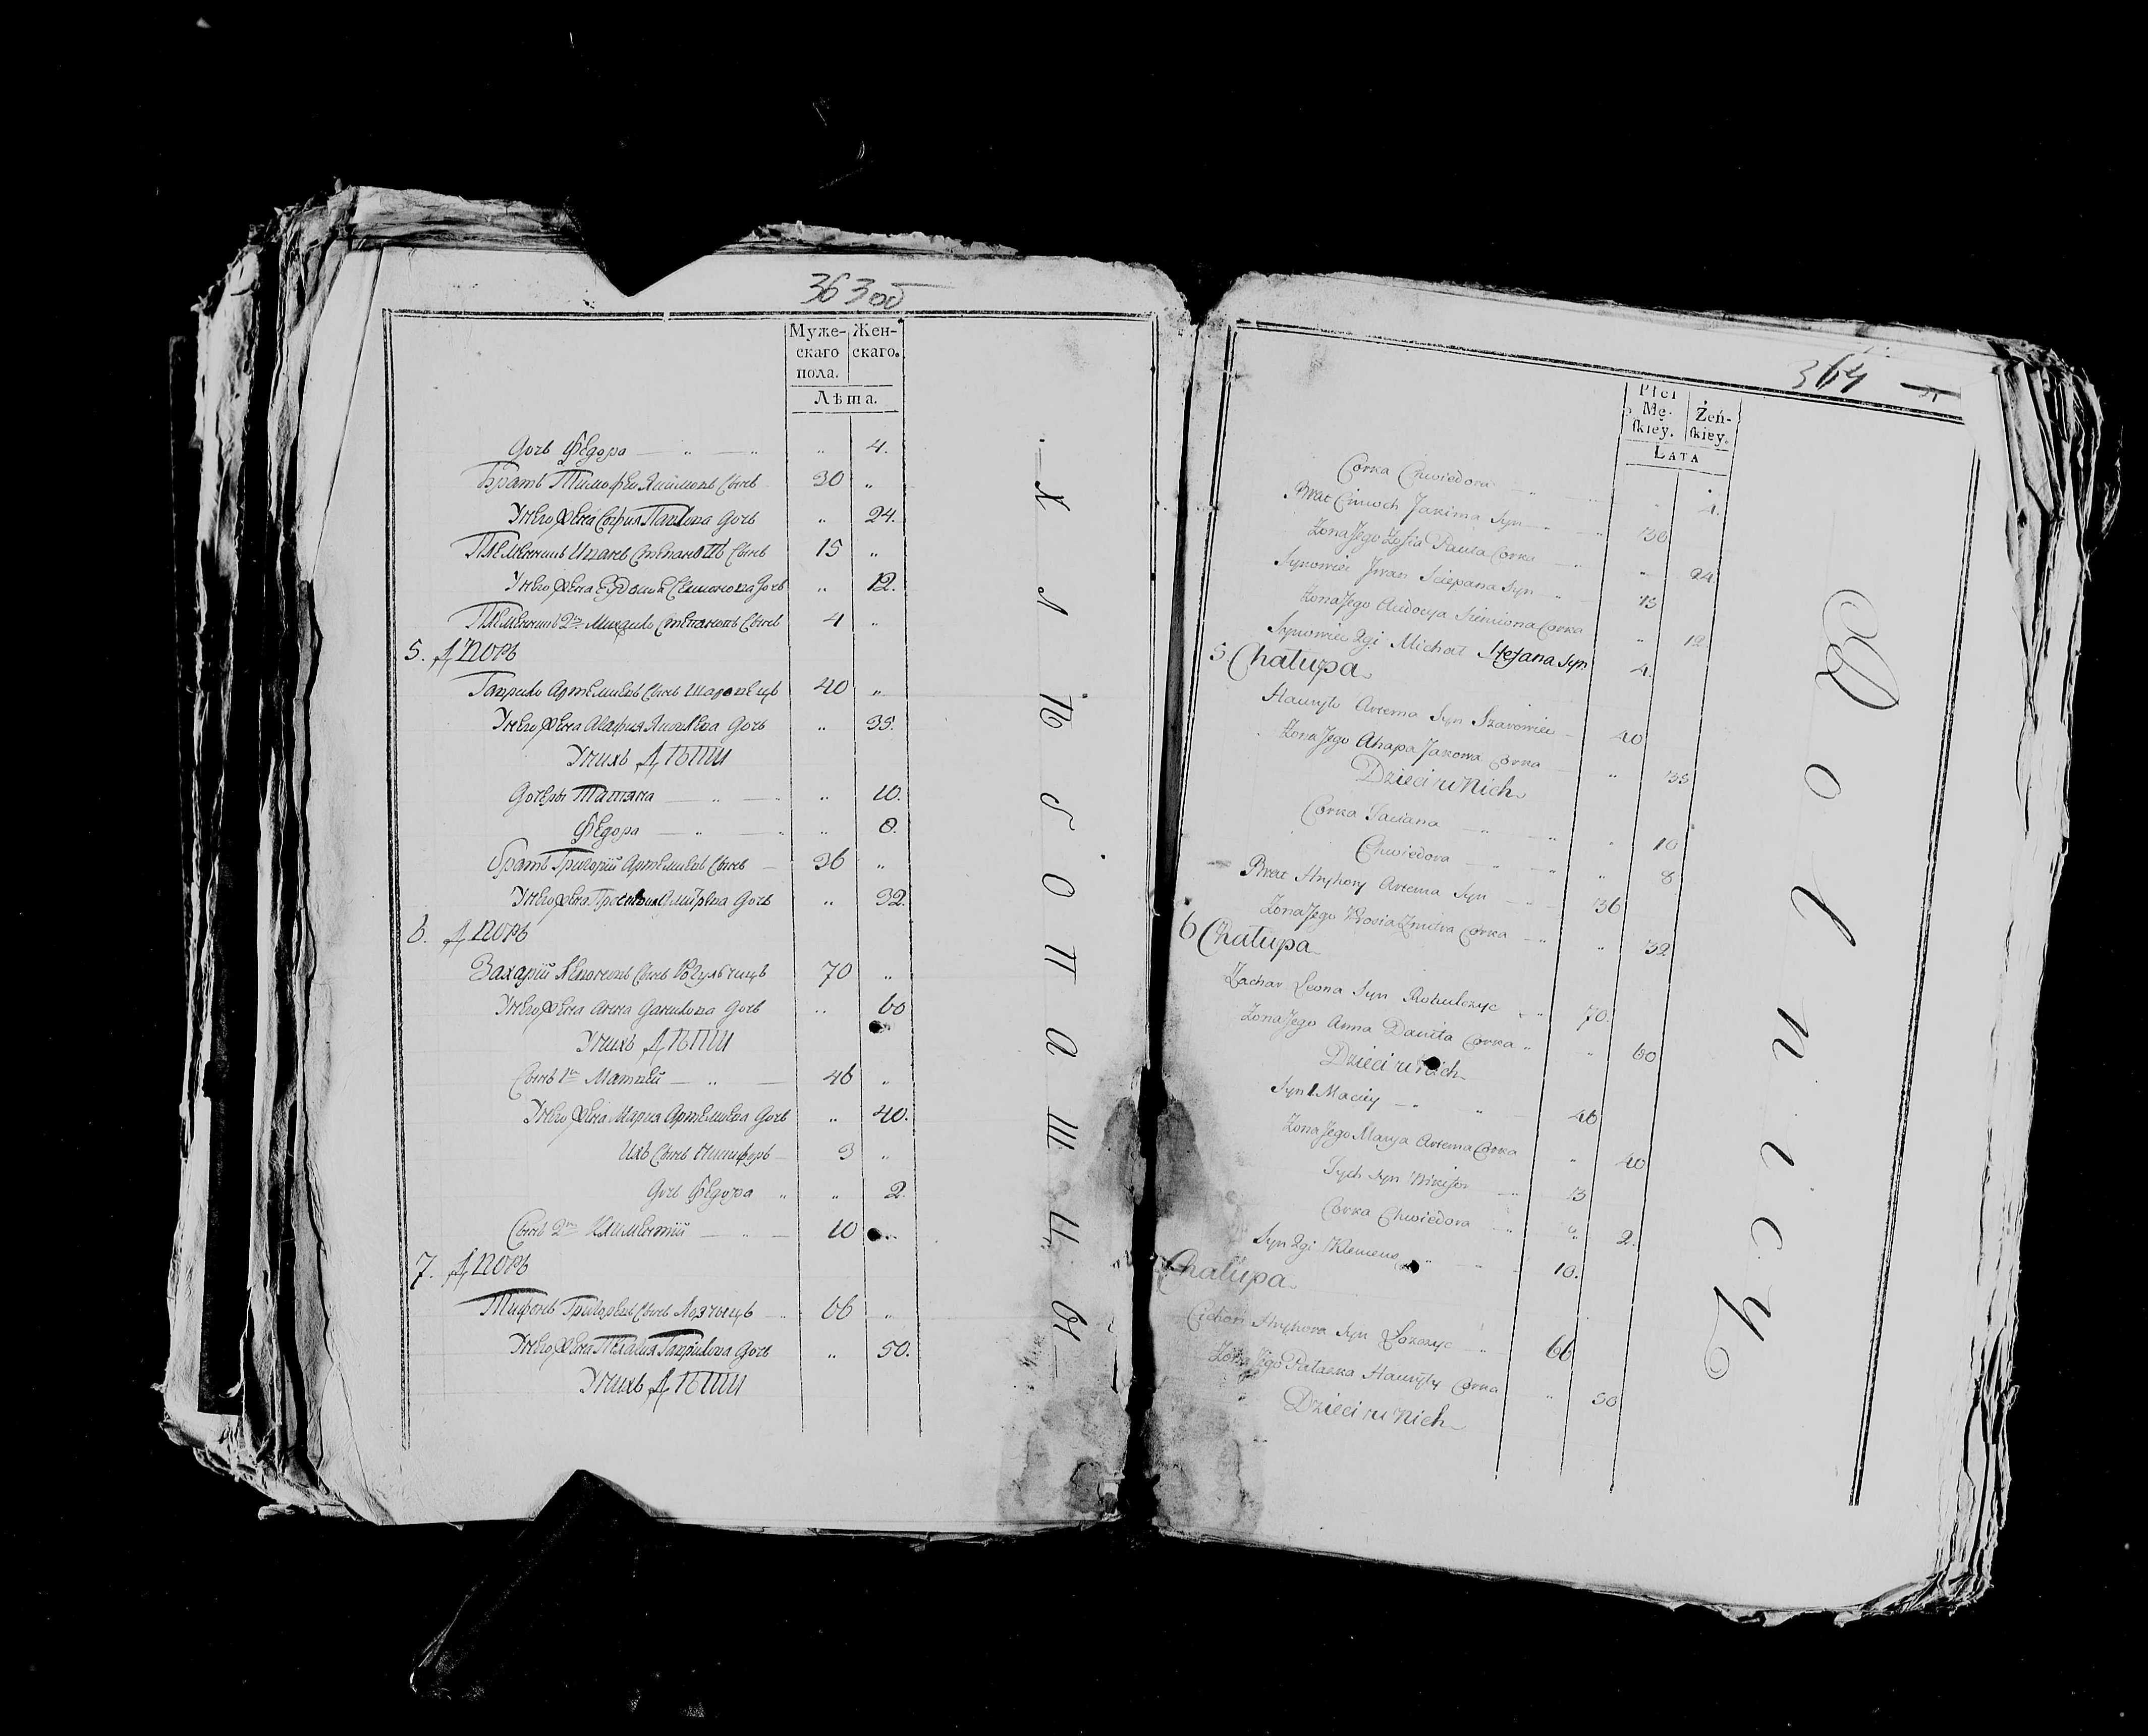 363об
Муже-
скаго
пола.
Жен-
скаго.
Лѣта.
Дочь Федора — " — " " 4.
Братъ Тимофей Якимовъ Сынъ 30 "
Унего жена София Павлова Дочь " 24.
Племенникъ Иванъ Степановъ Сынъ 15 "
Унего жена Евдокия Семенова Дочь " 12.
Племенникъ 2й Михайло Степановъ Сынъ 4 "
5. Дворъ
Гаврило Артемиевъ Сынъ Шаровецъ 40 "
Унего жена Агафия Яковлева Дочь " 35.
Унихъ Дѣти
Дочери Татяна — " — " " 10.
Федора — " — " " 8.
Братъ Григорий Артемиевъ Сынъ — 36 "
Унего жена Дмитрева Дочь " 32.
6. Дворъ
Захарий Леоновъ Сынъ Рогульчицъ 70 "
Унего жена Анна Данилова Дочь " 60
Унихъ Дѣти
Сынъ 1й Матвей — " — 46 "
Унего жена Мария Артемиева Дочь " 40.
Ихъ Сынъ Никифоръ — 3 "
Дочь Федора " " 2.
Сынъ 2й Климентий — " — 10
7. Дворъ
Тифонъ Григорьевъ Сынъ Лозчицъ — 66 "
Унего жена Пелагия Гаврилова Дочь " 50.
Унихъ Дѣти
Хлѣбопашцы
364
Płci
Mę-
skiey.
Żeń-
skiey.
LATA
Corka Chwiedora " 4.
Brat Cimoch Jakima Syn — 30
Zona Jego Zosia Pauła Corka " 24
Synowiec Jwan Sciepana Syn — 15
Zona Jego Audocya Siemiona Corka " 12
Synowiec 2gi Michał Stefana Syn 4.
5. Chałupa
Hauryło Artema Syn Szarowiec — 40
Zona Jego Ahapa Jakowa Corka " 35
Dzieci u Nich
Corka Taciana — " — " " 10
Chwiedora — " — " " 8
Brat Hryhory Artema Syn — 36
Zona Jego Prosia Zmitra Corka — " " 32
6 Chałupa
Zachar Leona Syn Rohulczyc " 70.
Zona Jego Anna Daniła Corka " " 60
Dzieci u Nich
Syn 1 Maciey — " — 46
Zona Jego Marya Artema Corka " 40
Tych Syn Nikifor — 3
Corka Chwiedora " " 2.
Syn 2gi Klemens " — 10.
Chałupa
Cichon Hryhora Syn Łozczyc — " 66
Zona Jego Pałaszka Hauryły Corka " 50
Dzieci u Nich
Rolnicy